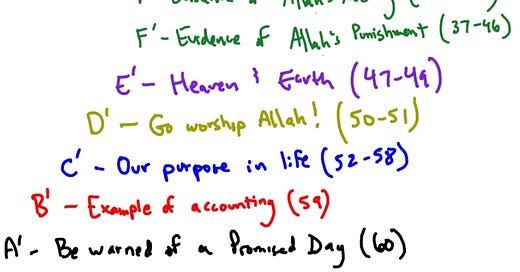 F' - Evidence of Allah's Punishment (37-46)
E' - Heaven & Earth (47-49)
D' - Go worship Allah! (50-51)
C' - Our purpose in life (52-58)
B' - Example of accounting (59)
A' - Be warned of a Promised Day (60)